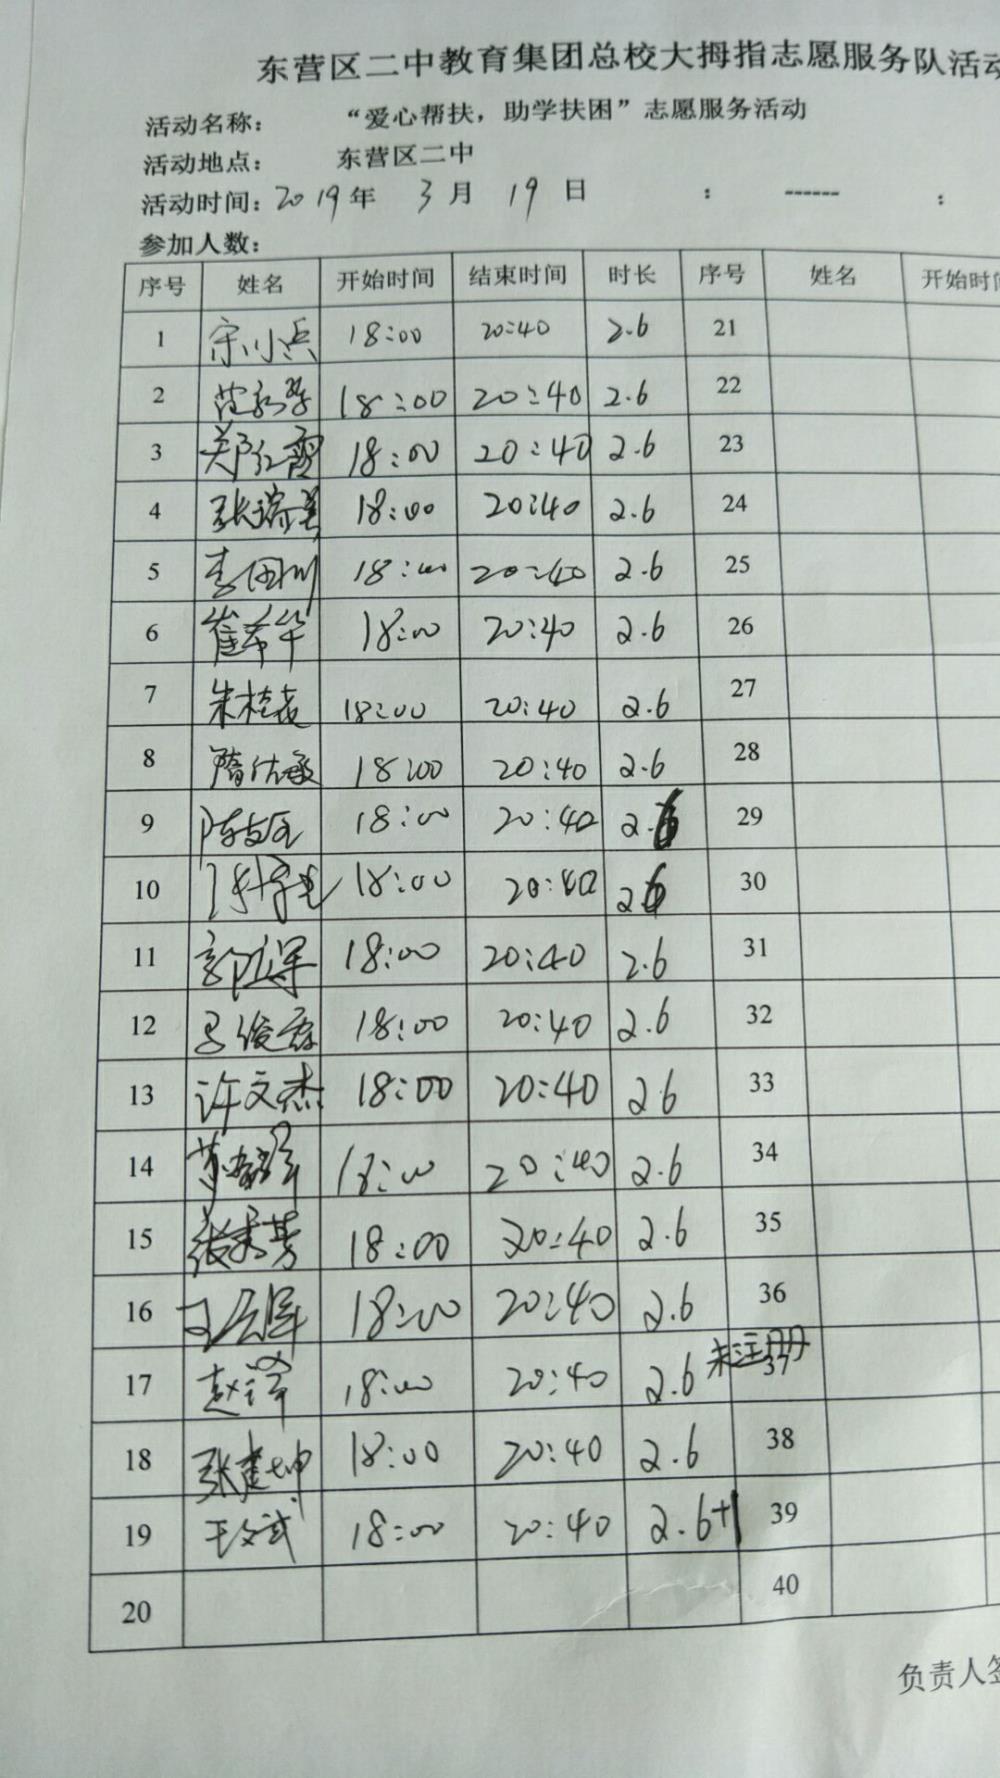 东营区二中教育集团总校大拇指志愿服务队活动
活动名称： “爱心帮扶，助学扶困”志愿服务活动
活动地点： 东营区二中
活动时间：2019年 3月 19日 ： ------ ：
参加人数：
序号 姓名 开始时间 结束时间 时长 序号 姓名 开始时间
1 宋小兵 18:00 20:40 2.6 21
2 18:00 20:40 2.6 22
3 郑红霞 18:00 20:40 2.6 23
4 张瑞美 18:00 20:40 2.6 24
5 李国川 18:00 20:40 2.6 25
6 崔希华 18:00 20:40 2.6 26
7 朱桂花 18:00 20:40 2.6 27
8 隋佑承 18:00 20:40 2.6 28
9 18:00 20:40 2.6 29
10 18:00 20:40 2.6 30
11 18:00 20:40 2.6 31
12 18:00 20:40 2.6 32
13 许文杰 18:00 20:40 2.6 33
14 18:00 20:40 2.6 34
15 张秀芳 18:00 20:40 2.6 35
16 18:00 20:40 2.6 36
17 18:00 20:40 2.6 未注册 37
18 张建坤 18:00 20:40 2.6 38
19 王文武 18:00 20:40 2.6+1 39
20 40
负责人签